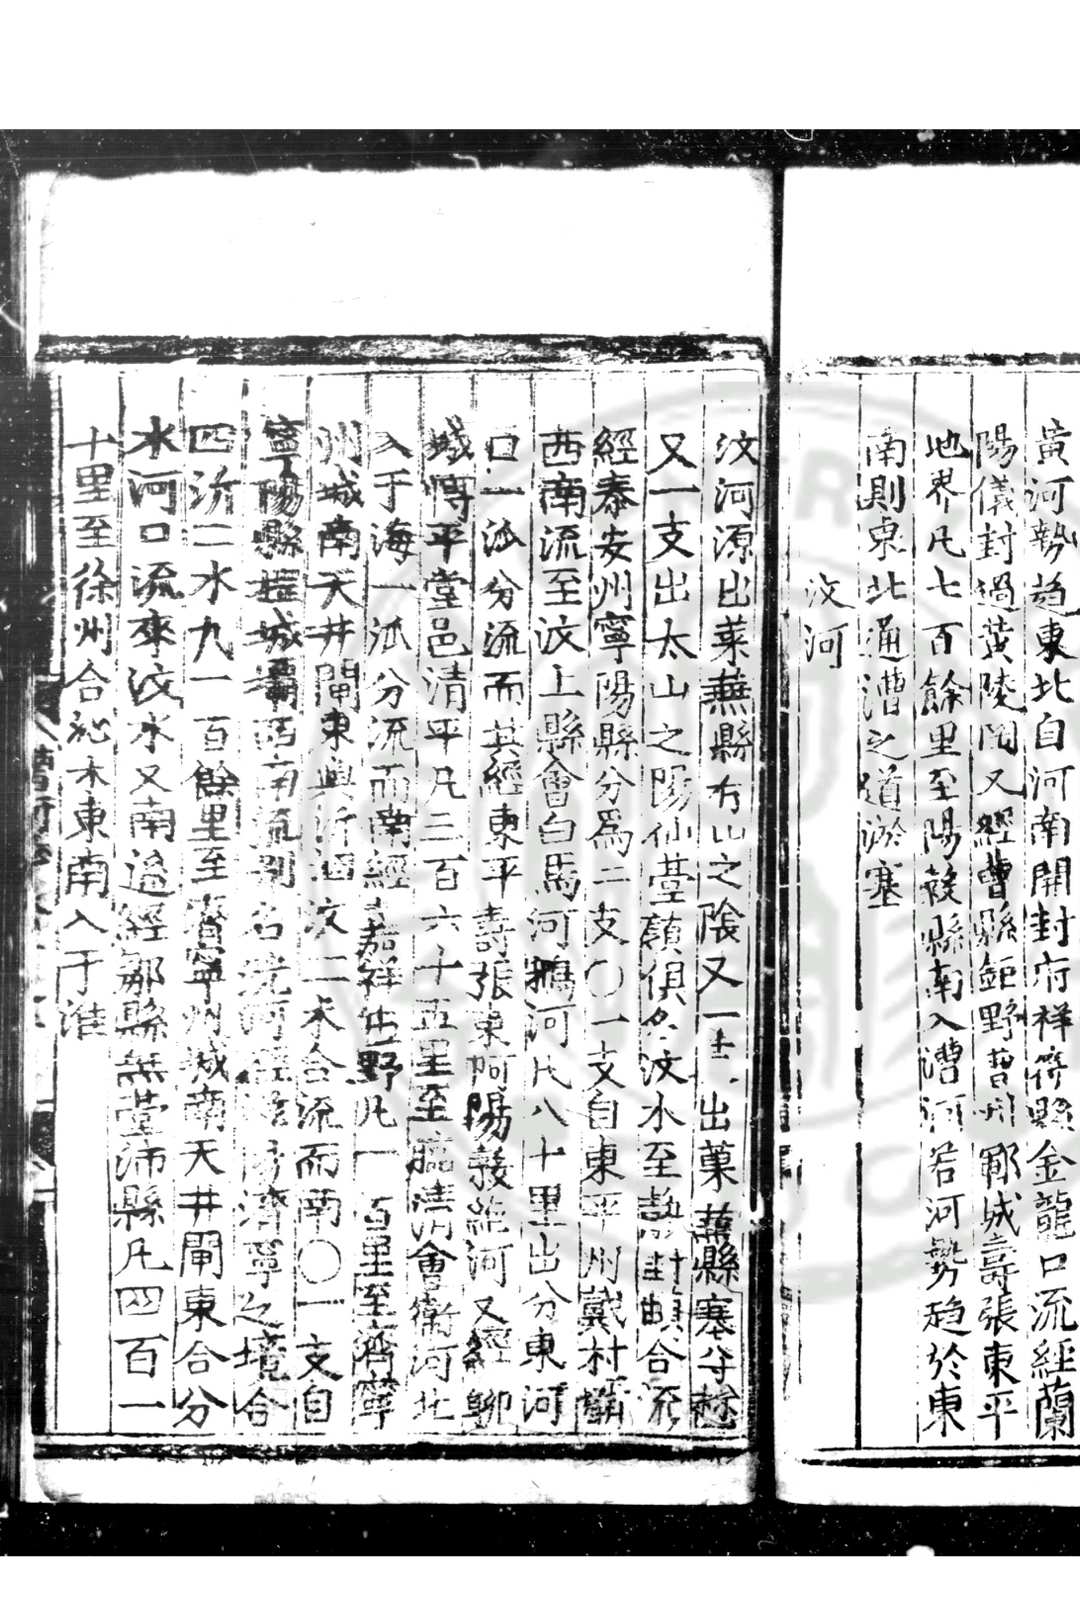 黃河勢趨東北自河南開封府祥符縣金龍口流經蘭
陽儀封過黃陵岡又經曹縣鉅野曹州鄆城壽張東平
地界凡七百餘里至陽穀縣南入漕河若河勢趨於東
南則東北通漕之道淤塞
汶河
汶河源出萊蕪縣 山之陰又一 出萊蕪縣寨子村
又一支出太山之陽仙臺嶺俱名汶水至靜封 合流
經泰安州寧陽縣分爲二支〇一支自東平州戴村壩
西南流至汶上縣會白馬河鵝河凡八十里出分東河
口一派分流而其經東平壽張東阿陽穀 河又經聊
城博平堂邑清平凡三百六十五里至臨清會衛河北
入于海一派分流而南經嘉祥鉅野凡一百里至濟寧
州城南天井閘東與沂泗汶二水合流而南〇一支自
寧陽縣堽城壩西南流別名洸河經 陽濟寧之境合
四沂二水九一百餘里至濟寧州城南天井閘東合分
水河口流來汶水又南過經鄒縣無臺沛縣凡四百一
十里至徐州合沁水東南入于淮